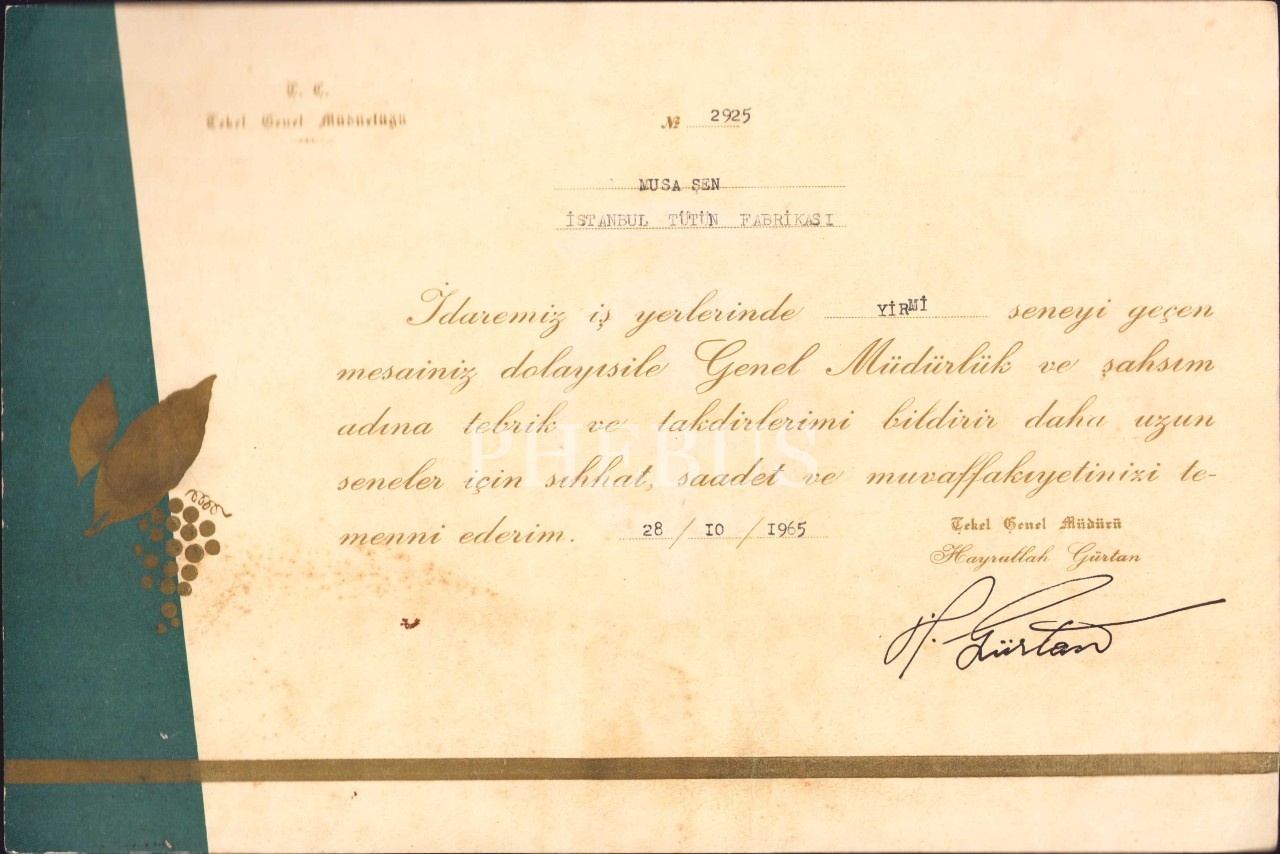 T. C.
Tekel Genel Müdürlüğü
№ 2925
MUSA ŞEN
İSTANBUL TÜTÜN FABRİKASI
İdaremiz iş yerlerinde YİRMİ seneyi geçen
mesainiz dolayısile Genel Müdürlük ve şahsım
adına tebrik ve takdirlerimi bildirir daha uzun
PHEBUS
seneler için sıhhat, saadet ve muvaffakıyetinizi te-
menni ederim. 28 / 10 / 1965
Tekel Genel Müdürü
Hayrullah Gürtan
H. Gürtan